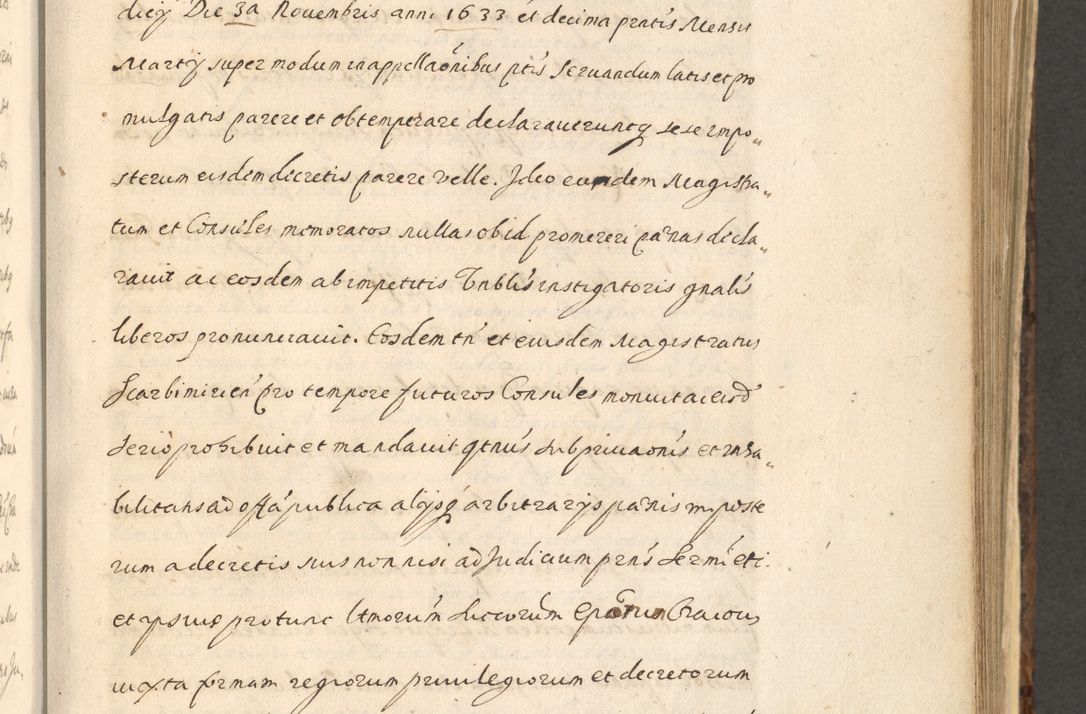 diey Die 3a Nouembris anni 1633 et decima pntis Mensis
Martij super modum in appellaonibus ptis seruandum latis et pro
mulgatis parere et obtemperare declaraueruntq sese impo„
sterum eisdem decretis parere velle. Ideo eundem Magistra„
tum et Consules memoratos nullas ob id promereri pænas decla„
rauit ac eosdem ab impetitis Tnblis instigatoris gnalis
liberos pronunciauit. Eosdem tn et eiusdem Magistratus
Scarbimirien pro tempore futuros Consules monuit ac eisd
serio prohibuit et mandauit qtnus sub priuaonis et inha„
bilitatis ad offa publica alijsq arbitrarijs pænis in poste
rum a decretis suis non nisi ad Judicium prns Sermi eti.
et ipsius pro tunc Illmorum Succorum Eporum Cracouien
iuxta formam regiorum priuilegiorum et decretorum